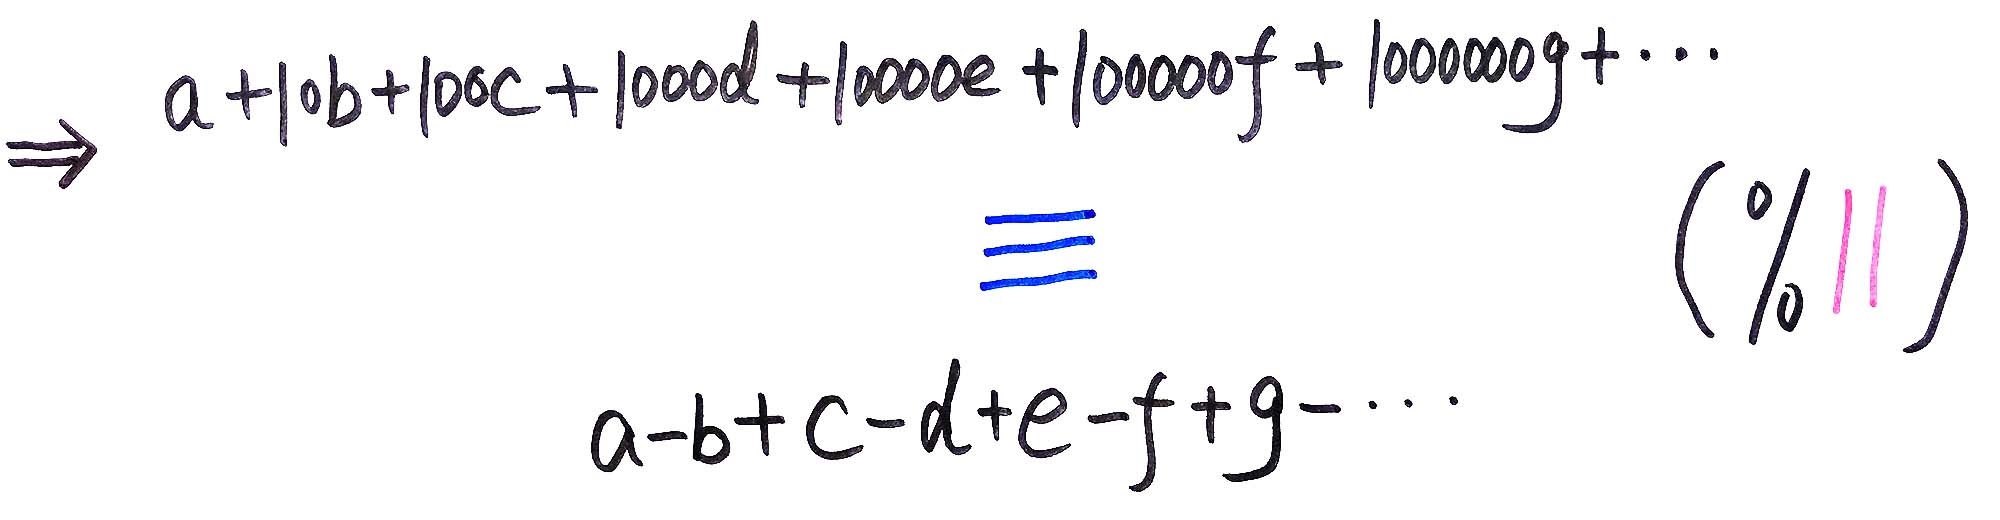 ⇒ a+10b+100c+1000d+10000e+100000f+1000000g+···
≡ (%11)
a-b+c-d+e-f+g-···